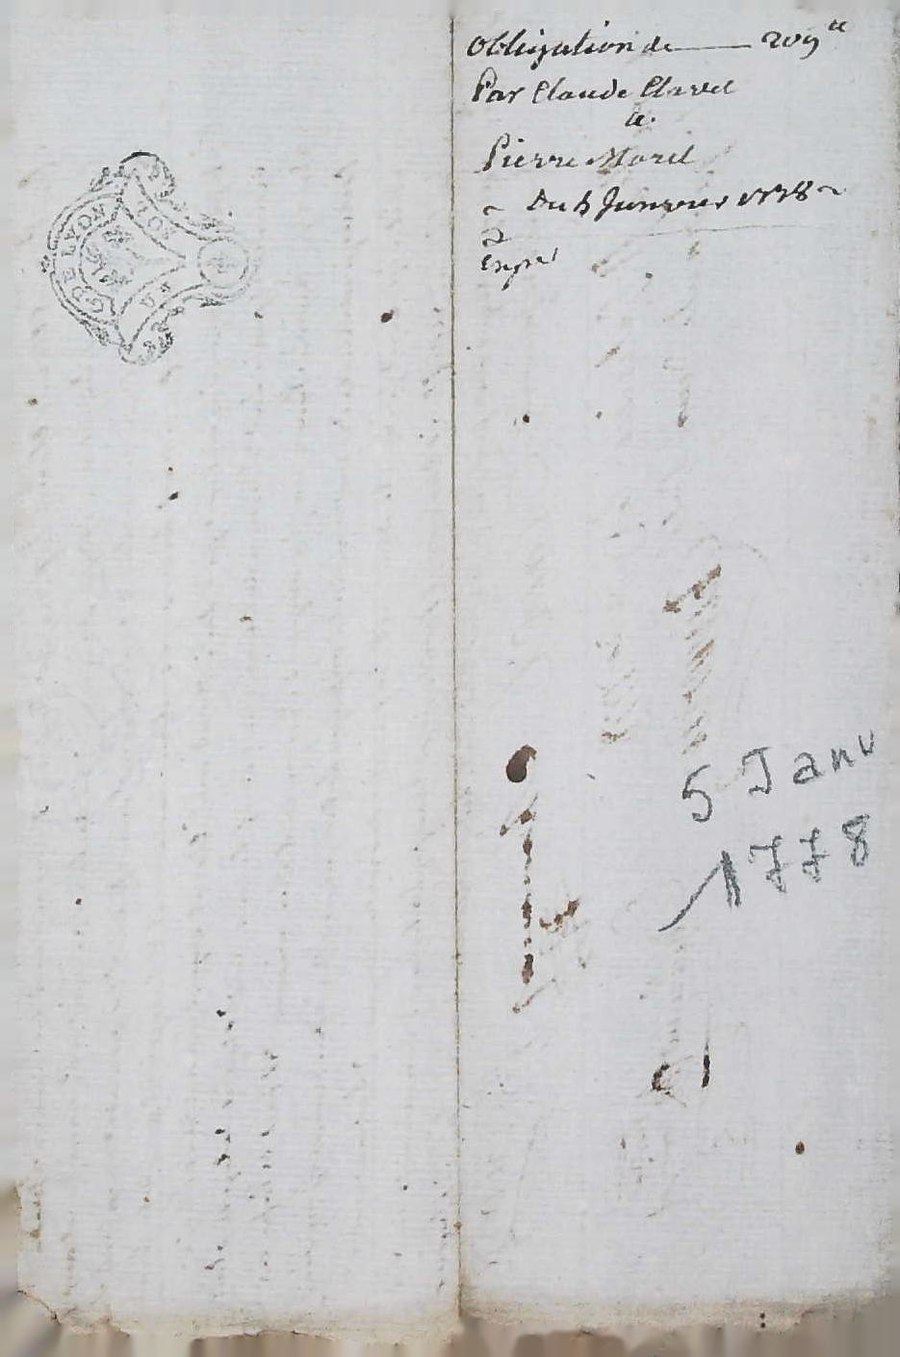 G DE LYON
Obligation de 209 ᵗᵗ
Par Claude Clavel
a
Pierre Morel
Du 5 Janvier 1778
5 Janv
1778